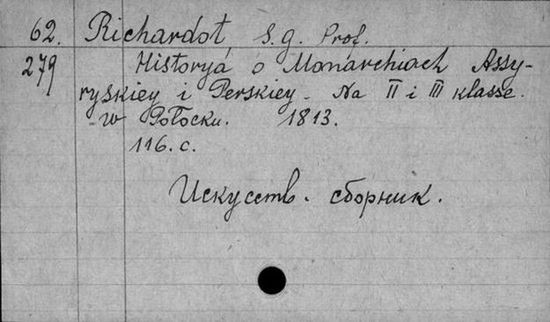 62. Richardot S. g. Prof.
279 Historyá o Monárchiach Assy-
ryskiey i Perskiey. Na II i III klasse.
- w Połocku. 1813.
116. c.
Искусств. сборник.